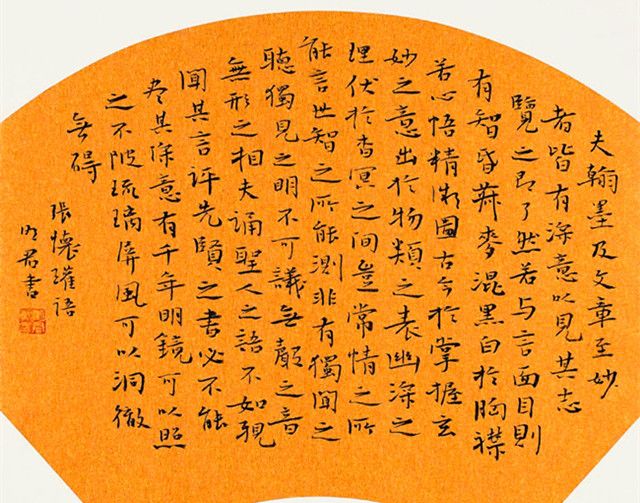 夫翰墨及文章至妙
者皆有深意以見其志
覽之即了然若与言面目則
有智昏菽麥混黑白於胸襟
若心悟精微圖古今於掌握玄
妙之意出於物類之表幽深之
理伏於杳冥之間豈常情之所
能言世智之所能測非有獨聞之
聽獨見之明不可議無聲之音
無形之相夫誦聖人之語不如親
聞其言評先賢之書必不能
盡其深意有千年明鏡可以照
之不陂琉璃屏風可以洞徹
無碍
張懷瓘語
君書